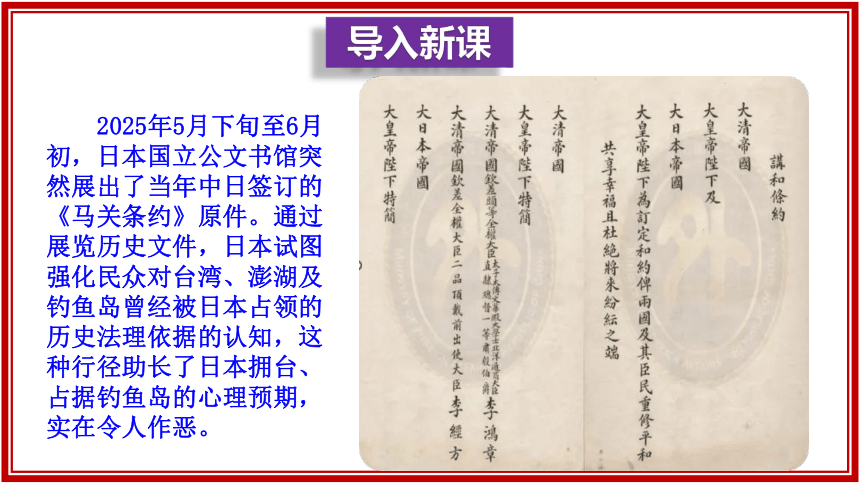 导入新课
2025年5月下旬至6月
初，日本国立公文书馆突
然展出了当年中日签订的
《马关条约》原件。通过
展览历史文件，日本试图
强化民众对台湾、澎湖及
钓鱼岛曾经被日本占领的
历史法理依据的认知，这
种行径助长了日本拥台、
占据钓鱼岛的心理预期，
实在令人作恶。
講和條約
大清帝國
大皇帝陛下及
大日本帝國
大皇帝陛下為訂定和約俾兩國及其臣民重修平和
共享幸福且杜絕將來紛紜之端
大清帝國
大皇帝陛下特簡
大清帝國欽差頭等全權大臣太子太傅文華殿大學士北洋通商大臣直隸總督一等肅毅伯爵李鴻章
大清帝國欽差全權大臣二品頂戴前出使大臣李經方
大日本帝國
大皇帝陛下特簡